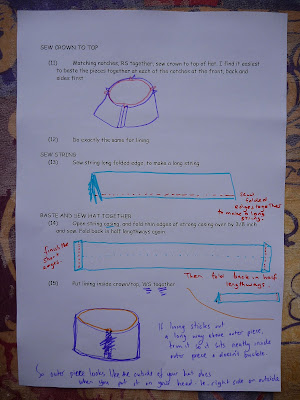 SEW CROWN TO TOP
(11) Matching notches, RS together, sew crown to top of hat. I find it easiest
to baste the pieces together at each of the notches at the front, back and
sides first.
(12) Do exactly the same for lining.
SEW STRING
(13) Sew string long folded edge, to make a long string
Sew
folded
edges together
to make a long
string.
BASTE AND SEW HAT TOGETHER
(14) Open string casing, and fold min edges of string casing over by 3/8 inch
and sew. Fold back in half lengthways again.
finish the
short
edges.
Then fold back in half
lengthways
(15) Put lining inside crown/top, WS together.
If lining sticks out
a long way above outer piece,
trim it so it sits neatly inside
outer piece & doesn't buckle.
So outer piece looks like the outside of your hat does
when you put it on your head ie. right side on outside.